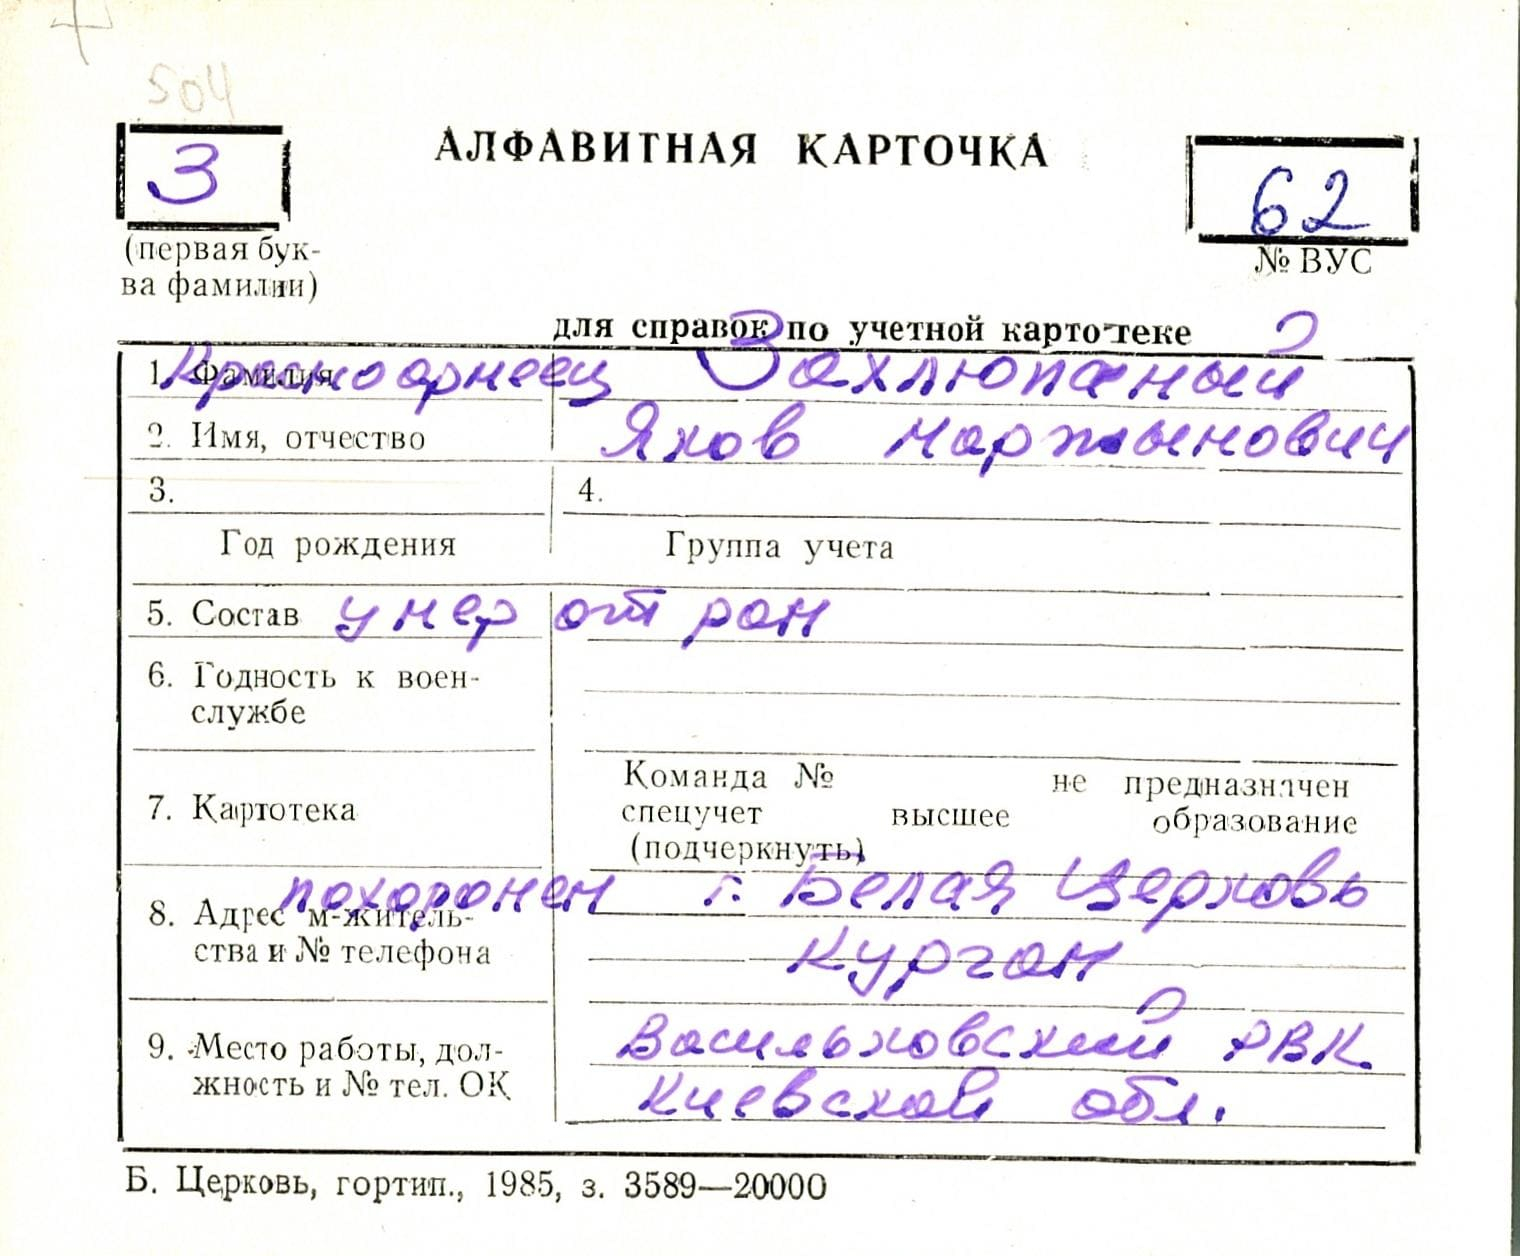 504
З
АЛФАВИТНАЯ КАРТОЧКА
62
(первая бук-
ва фамилии)
№ ВУС
для справок по учетной картотеке
1. Фамилия Красноармеец Захлюпаный
2. Имя, отчество Яков Мартынович
3. 4.
Год рождения Группа учета
5. Состав умер от ран
6. Годность к воен-
службе
7. Картотека
Команда № не предназначен
спецучет высшее образование
(подчеркнуть)
похоронен г. Белая Церковь
8. Адрес м-житель-
ства и № телефона
Курган
9. Место работы, дол-
жность и № тел. ОК
Васильковский РВК
Киевской обл.
Б. Церковь, гортип., 1985, з. 3589—20000